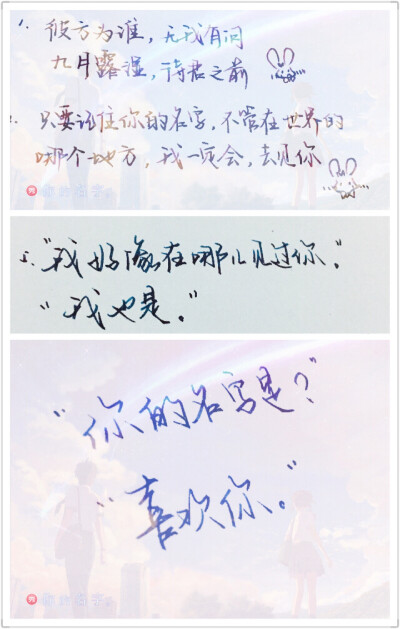 1. 彼方为谁，无我有问
九月露湿，待君之前
2. 只要记住你的名字，不管在世界的
哪个地方，我一定会，去见你
5. "我好像在哪儿见过你。"
"我也是。"
"你的名字是？"
"喜欢你。"